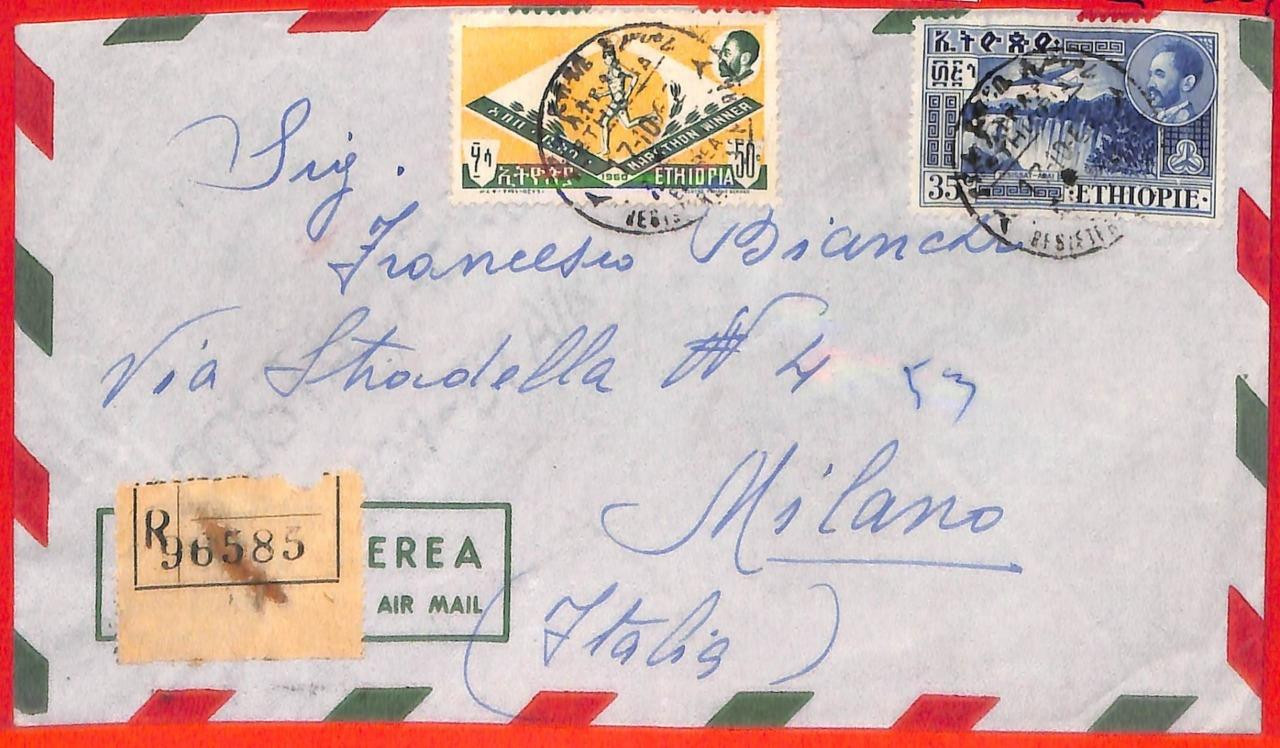 MARATHON WINNER
50c
ኢትዮጵያ 1960 ETHIOPIA
ኢትዮጵያ
35 ETHIOPIE
Sig.
Francesco Bianchi
Via Stradella # 4
Milano
(Italia)
R 96585
EREA
AIR MAIL